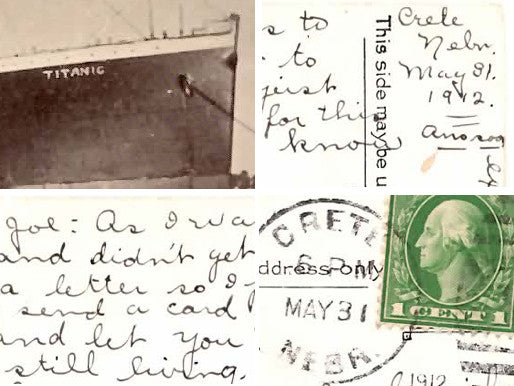 TITANIC
s to
to
for this
know
This side may be u
Crete
Nebr.
May 31.
1912.
Joe: As I wa
and didn't get
a letter so I
send a card
and let you
still living.
CRETE
PM
ddress only
MAY 31
NEBR.
1 CENT
1912